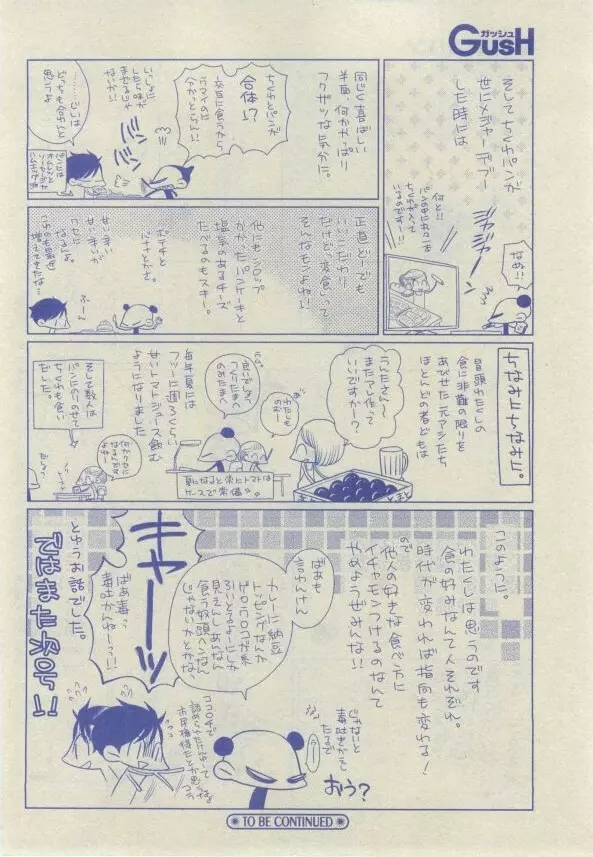 ガッシュ
GUSH
そしてちくわパンが
世にメジャーデブー
した時には
ジャジャーン
何と!!
パンの中にちくわが
入って
いるのですー!!
なぬ!!
同じく喜ばしい
半面、何かやっぱり
フクザツな気分に。
ちくわとパンが
合体!?
別々に食うから
ウマイのに
分かっとらん!!
いっしょに
したら味が
まざるじゃ
ないか!!
バン
バン
……じじいは
どっちも合わんと
思うよ
正直どーでも
いいこだわり
だけど、変食って
そんなモンよね!!
他にもシロップ
かかったパンケーキと
塩気のあるチーズ
たべるのもスキー。
ポテチと
バナナとかさ。
甘い辛い
甘い辛いが
クセに
なるしよ。
ふーん
ちなみにちなみに。
冒頭わたくしの
食に非難の限りを
あびせた元アシたち
ほとんどの者どもは
うんたさん〜
またアレ作って
いいですかー?
わたしも
のむー
良いでしょう
つくりたまへ
のみたまへ
夏になると常にトマトは
ケースで常備。
毎年夏には
フツーに週6くらい
甘いトマトジュース飲む
ようになりました
そして数人は
パンにのりのせて
ちくわも食い
だした。
何かクセに
なるんだよ
よねー
このように。
わたくしは思うのです
食の好みなんて人それぞれ。
時代が変われば指向も変わる!
ので
他人の好きな食べ方に
イチャモンつけるのなんて
やめようぜみんな!!
じゃないと
毒吐きかえし
たるで
おう?
ばあも
言わんさん
カレーに納豆
トッピングなんか
ゲロウロコが糸
ひいとるよーにしか
見えんしあんなん
食う奴頭ヘンなん
じゃないかとかな
キャーッ
ばあ毒っ
毒吐かんねーっ!!
とゆうお話でした。
ではまた次号!!
TO BE CONTINUED